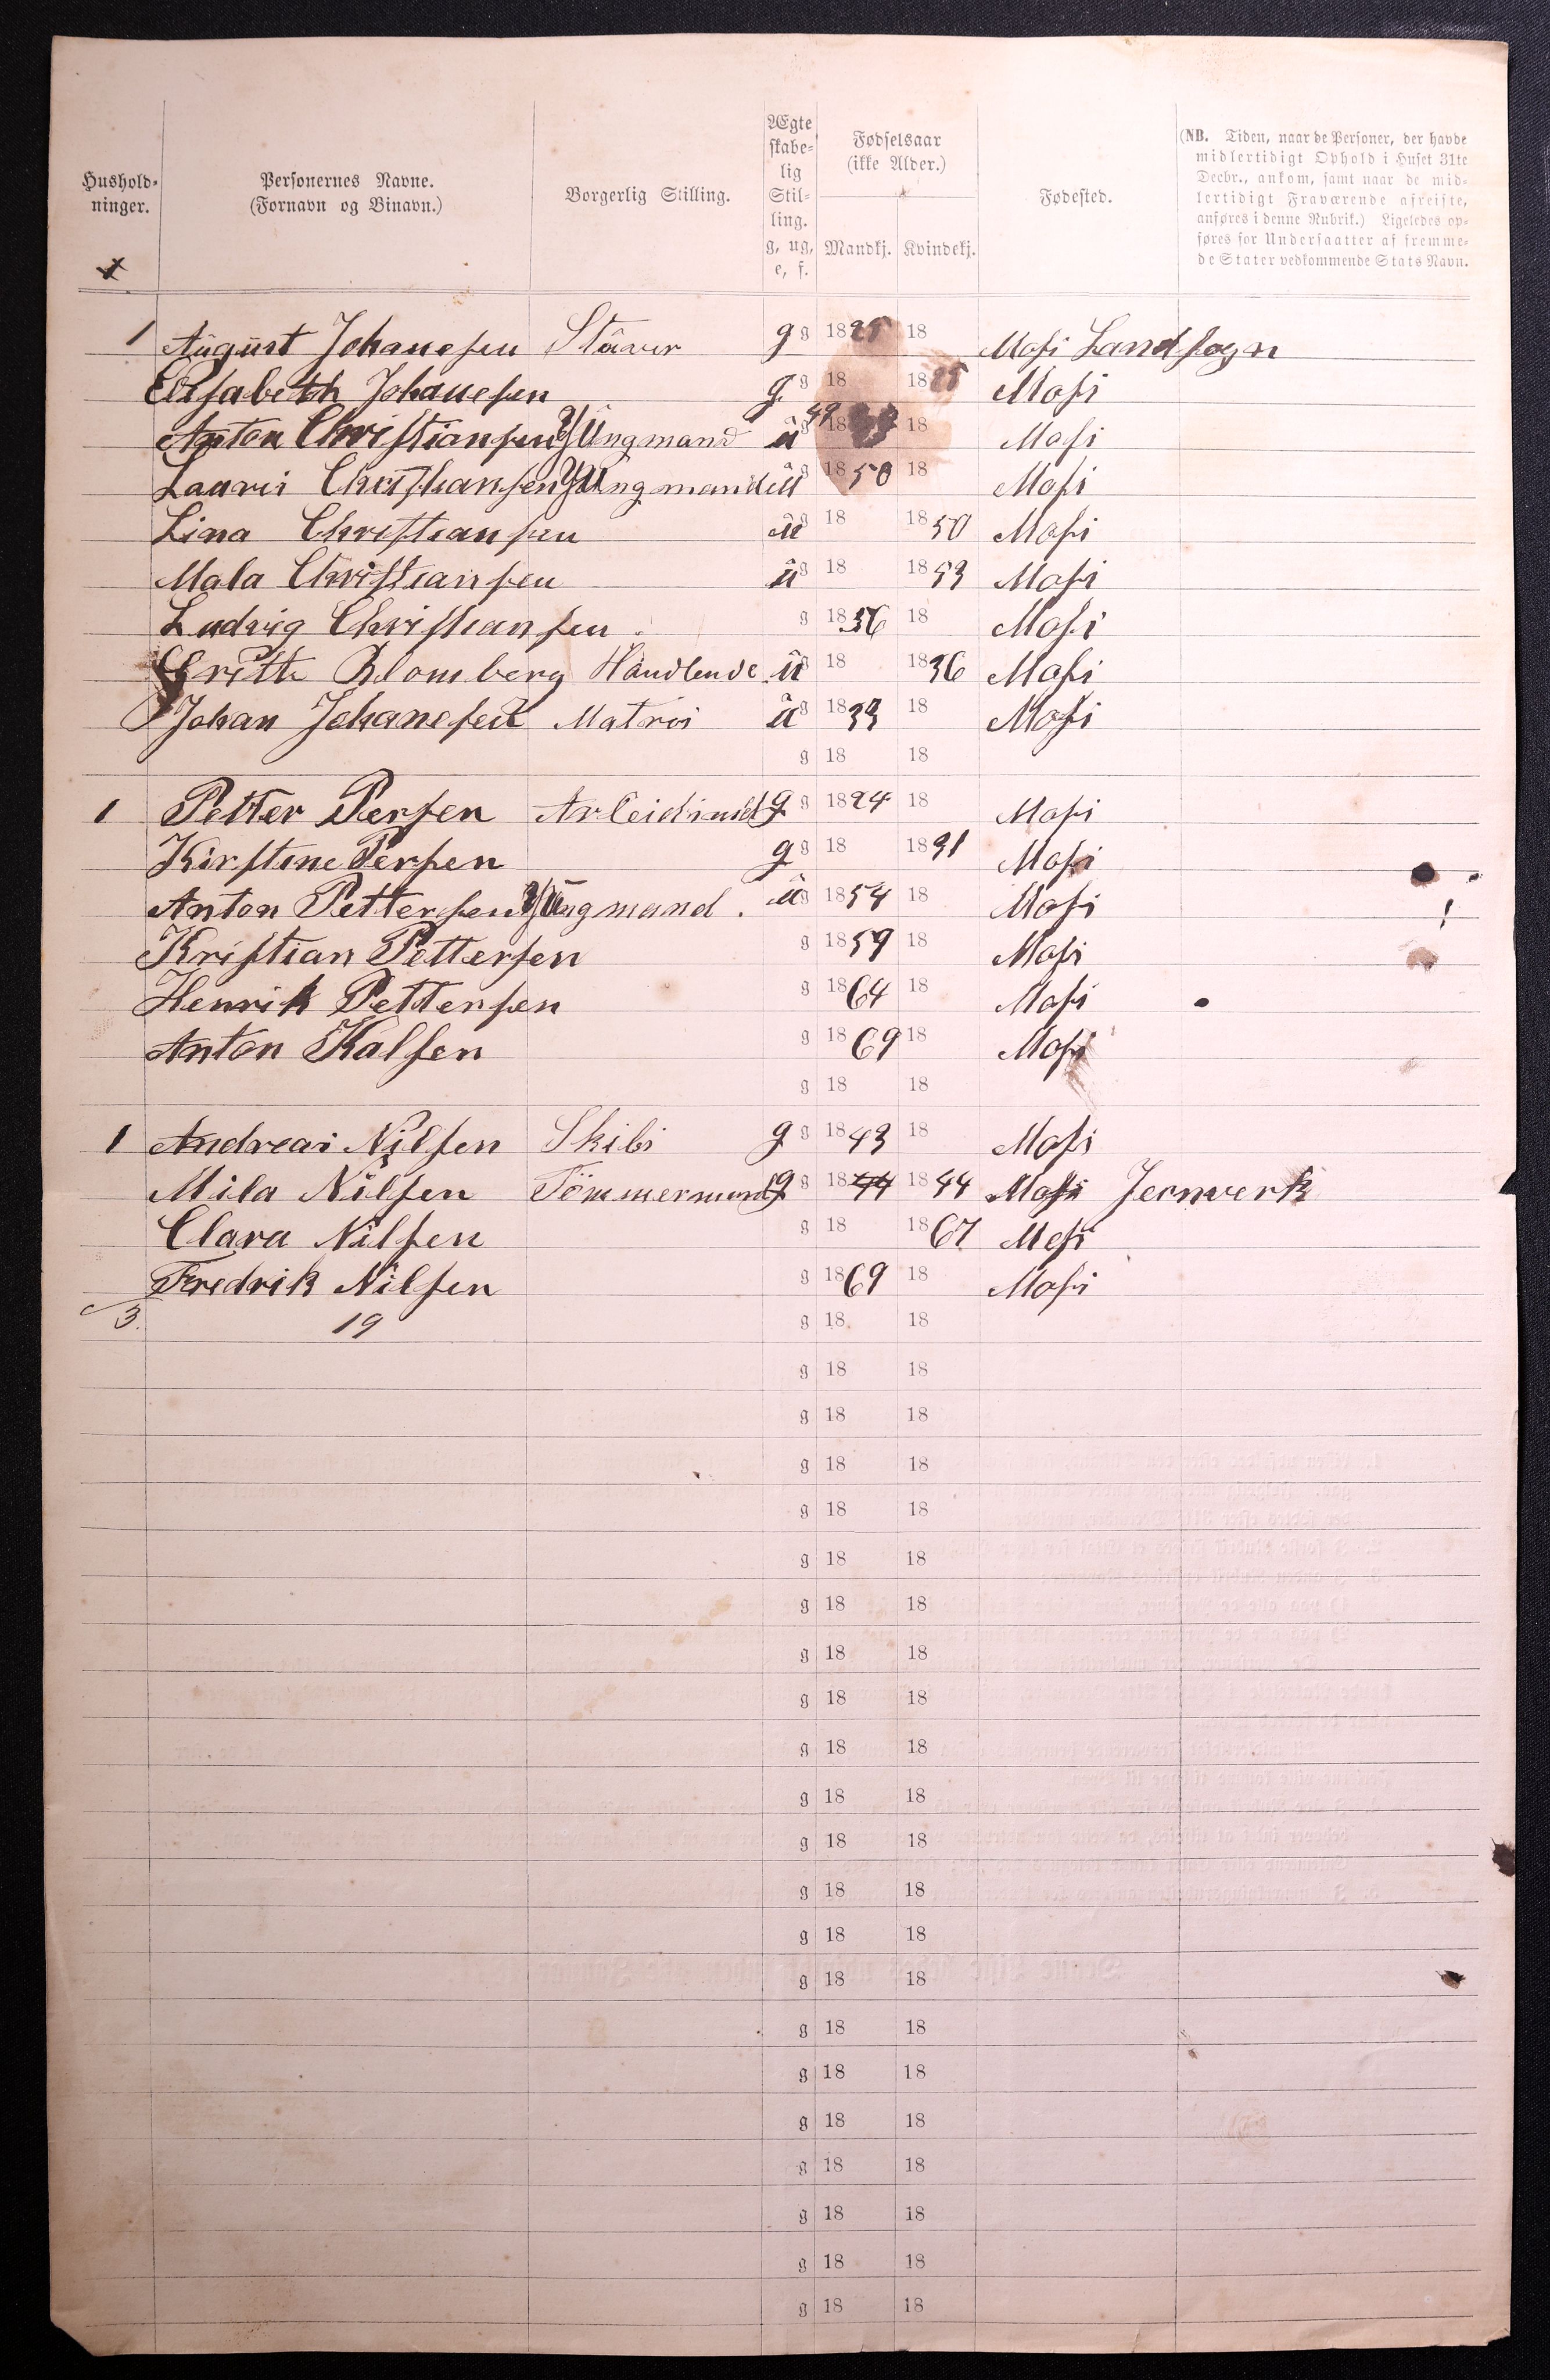 Hushold-
ninger.
Personernes Navne.
(Fornavn og Binavn.)
Borgerlig Stilling.
Ægte
skabe-
lig
Stil-
ling.
g, ug,
e, f.
Fødselsaar
(ikke Alder.)
Mandkj. Kvindekj.
Fødested.
(NB. Tiden, naar de Personer, der havde
midlertidigt Ophold i Huset 31te
Decbr., ankom, samt naar de mid-
lertidigt Fraværende afreiste,
anføres i denne Rubrik.) Ligeledes op-
føres for Undersaatter af fremme-
de Stater vedkommende Stats Navn.
1 August Johanesen Stûver g g 1825 18 Moss Landsogn
Elisabeth Johanesen g g 18 1825 Moss
Anton Christiansen Yûngmand û g 49 18 18 Moss
Lauris Christiansen Yûngmand û g 1850 18 Moss
Lina Christiansen û g 18 1850 Moss
Mala Christiansen û g 18 1853 Moss
Ludvig Christiansen. g 1856 18 Moss
Gritte Blomberg Handlende û g 18 1836 Moss
Johan Johanesen Matros û g 1833 18 Moss
g 18 18
1 Petter Persen Arbeidsmd g g 1824 18 Moss
Kirstine Persen g g 18 1831 Moss
Anton Pettersen Yûngmand. û g 1854 18 Moss
Kristian Pettersen g 1859 18 Moss
Henrik Pettersen g 1864 18 Moss
Anton Kalsen g 1869 18 Moss
g 18 18
1 Andreas Nilsen Skibs g g 1843 18 Moss
Mila Nilsen Tömmermand g g 1844 1844 Moss Jernverk
Clara Nilsen g 18 1867 Moss
Fredrik Nilsen g 1869 18 Moss
3. 19 g 18 18
g 18 18
g 18 18
g 18 18
g 18 18
g 18 18
g 18 18
g 18 18
g 18 18
g 18 18
g 18 18
g 18 18
g 18 18
g 18 18
g 18 18
g 18 18
g 18 18
g 18 18
g 18 18
g 18 18
g 18 18
g 18 18